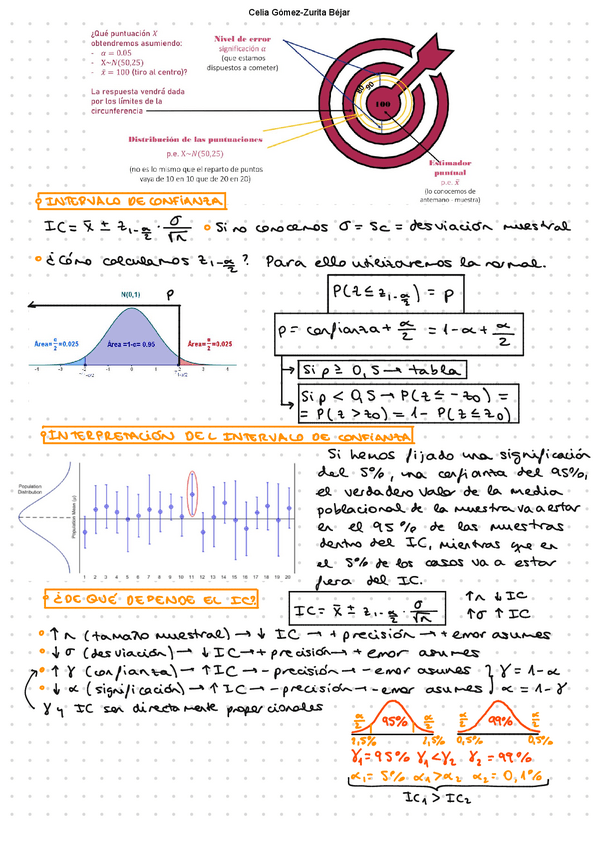 Celia Gómez-Zurita Béjar
¿Qué puntuación X
obtendremos asumiendo:
- α = 0.05
- X~N(50,25)
- x̄ = 100 (tiro al centro)?
La respuesta vendrá dada
por los límites de la
circunferencia
Nivel de error
significación α
(que estamos
dispuestos a cometer)
80 90
100
Distribución de las puntuaciones
p.e. X~N(50,25)
(no es lo mismo que el reparto de puntos
vaya de 10 en 10 que de 20 en 20)
Estimador
puntual
p.e. x̄
(lo conocemos de
antemano - muestra)
INTERVALO DE CONFIANZA
IC = x̄ ± z₁₋α/₂ · σ/√n
Si no conocemos σ = Sc = desviación muestral
¿Cómo calculamos z₁₋α/₂? Para ello utilizaremos la normal.
N(0,1)
P
Area= α/2 =0.025
Área =1-α= 0.95
Area= α/2 =0.025
-4 -3 -2 -1 0 1 2 3 4
P(z ≤ z₁₋α/₂) = p
p = confianza + α/2 = 1-α + α/2
Si p ≥ 0,5 → tabla
Si p < 0,5 → P(z ≤ -z₀) =
= P(z > z₀) = 1 - P(z ≤ z₀)
INTERPRETACIÓN DEL INTERVALO DE CONFIANZA
Population
Distribution
Population Mean (μ)
1 2 3 4 5 6 7 8 9 10 11 12 13 14 15 16 17 18 19 20
Si hemos fijado una significación
del 5%, una confianza del 95%,
el verdadero valor de la media
poblacional de la muestra va a estar
en el 95% de las muestras
dentro del IC, mientras que en
el 5% de los casos va a estar
fuera del IC.
¿DE QUÉ DEPENDE EL IC?
IC = x̄ ± z₁₋α/₂ · σ/√n
↑n ↓IC
↑σ ↑IC
↑ n (tamaño muestral) → ↓ IC → + precisión → + error asumes
↓ σ (desviación) → ↓ IC → + precisión → + error asumes
↑ γ (confianza) → ↑ IC → - precisión → - error asumes
↓ α (significación) → ↑ IC → - precisión → - error asumes
γ = 1-α
α = 1-γ
γ y IC son directamente proporcionales
α/2 95% α/2
2,5% 2,5%
α/2 99% α/2
0,5% 0,5%
γ₁=95% γ₁<γ₂ γ₂=99%
α₁=5% α₁>α₂ α₂=0,1%
IC₁ > IC₂